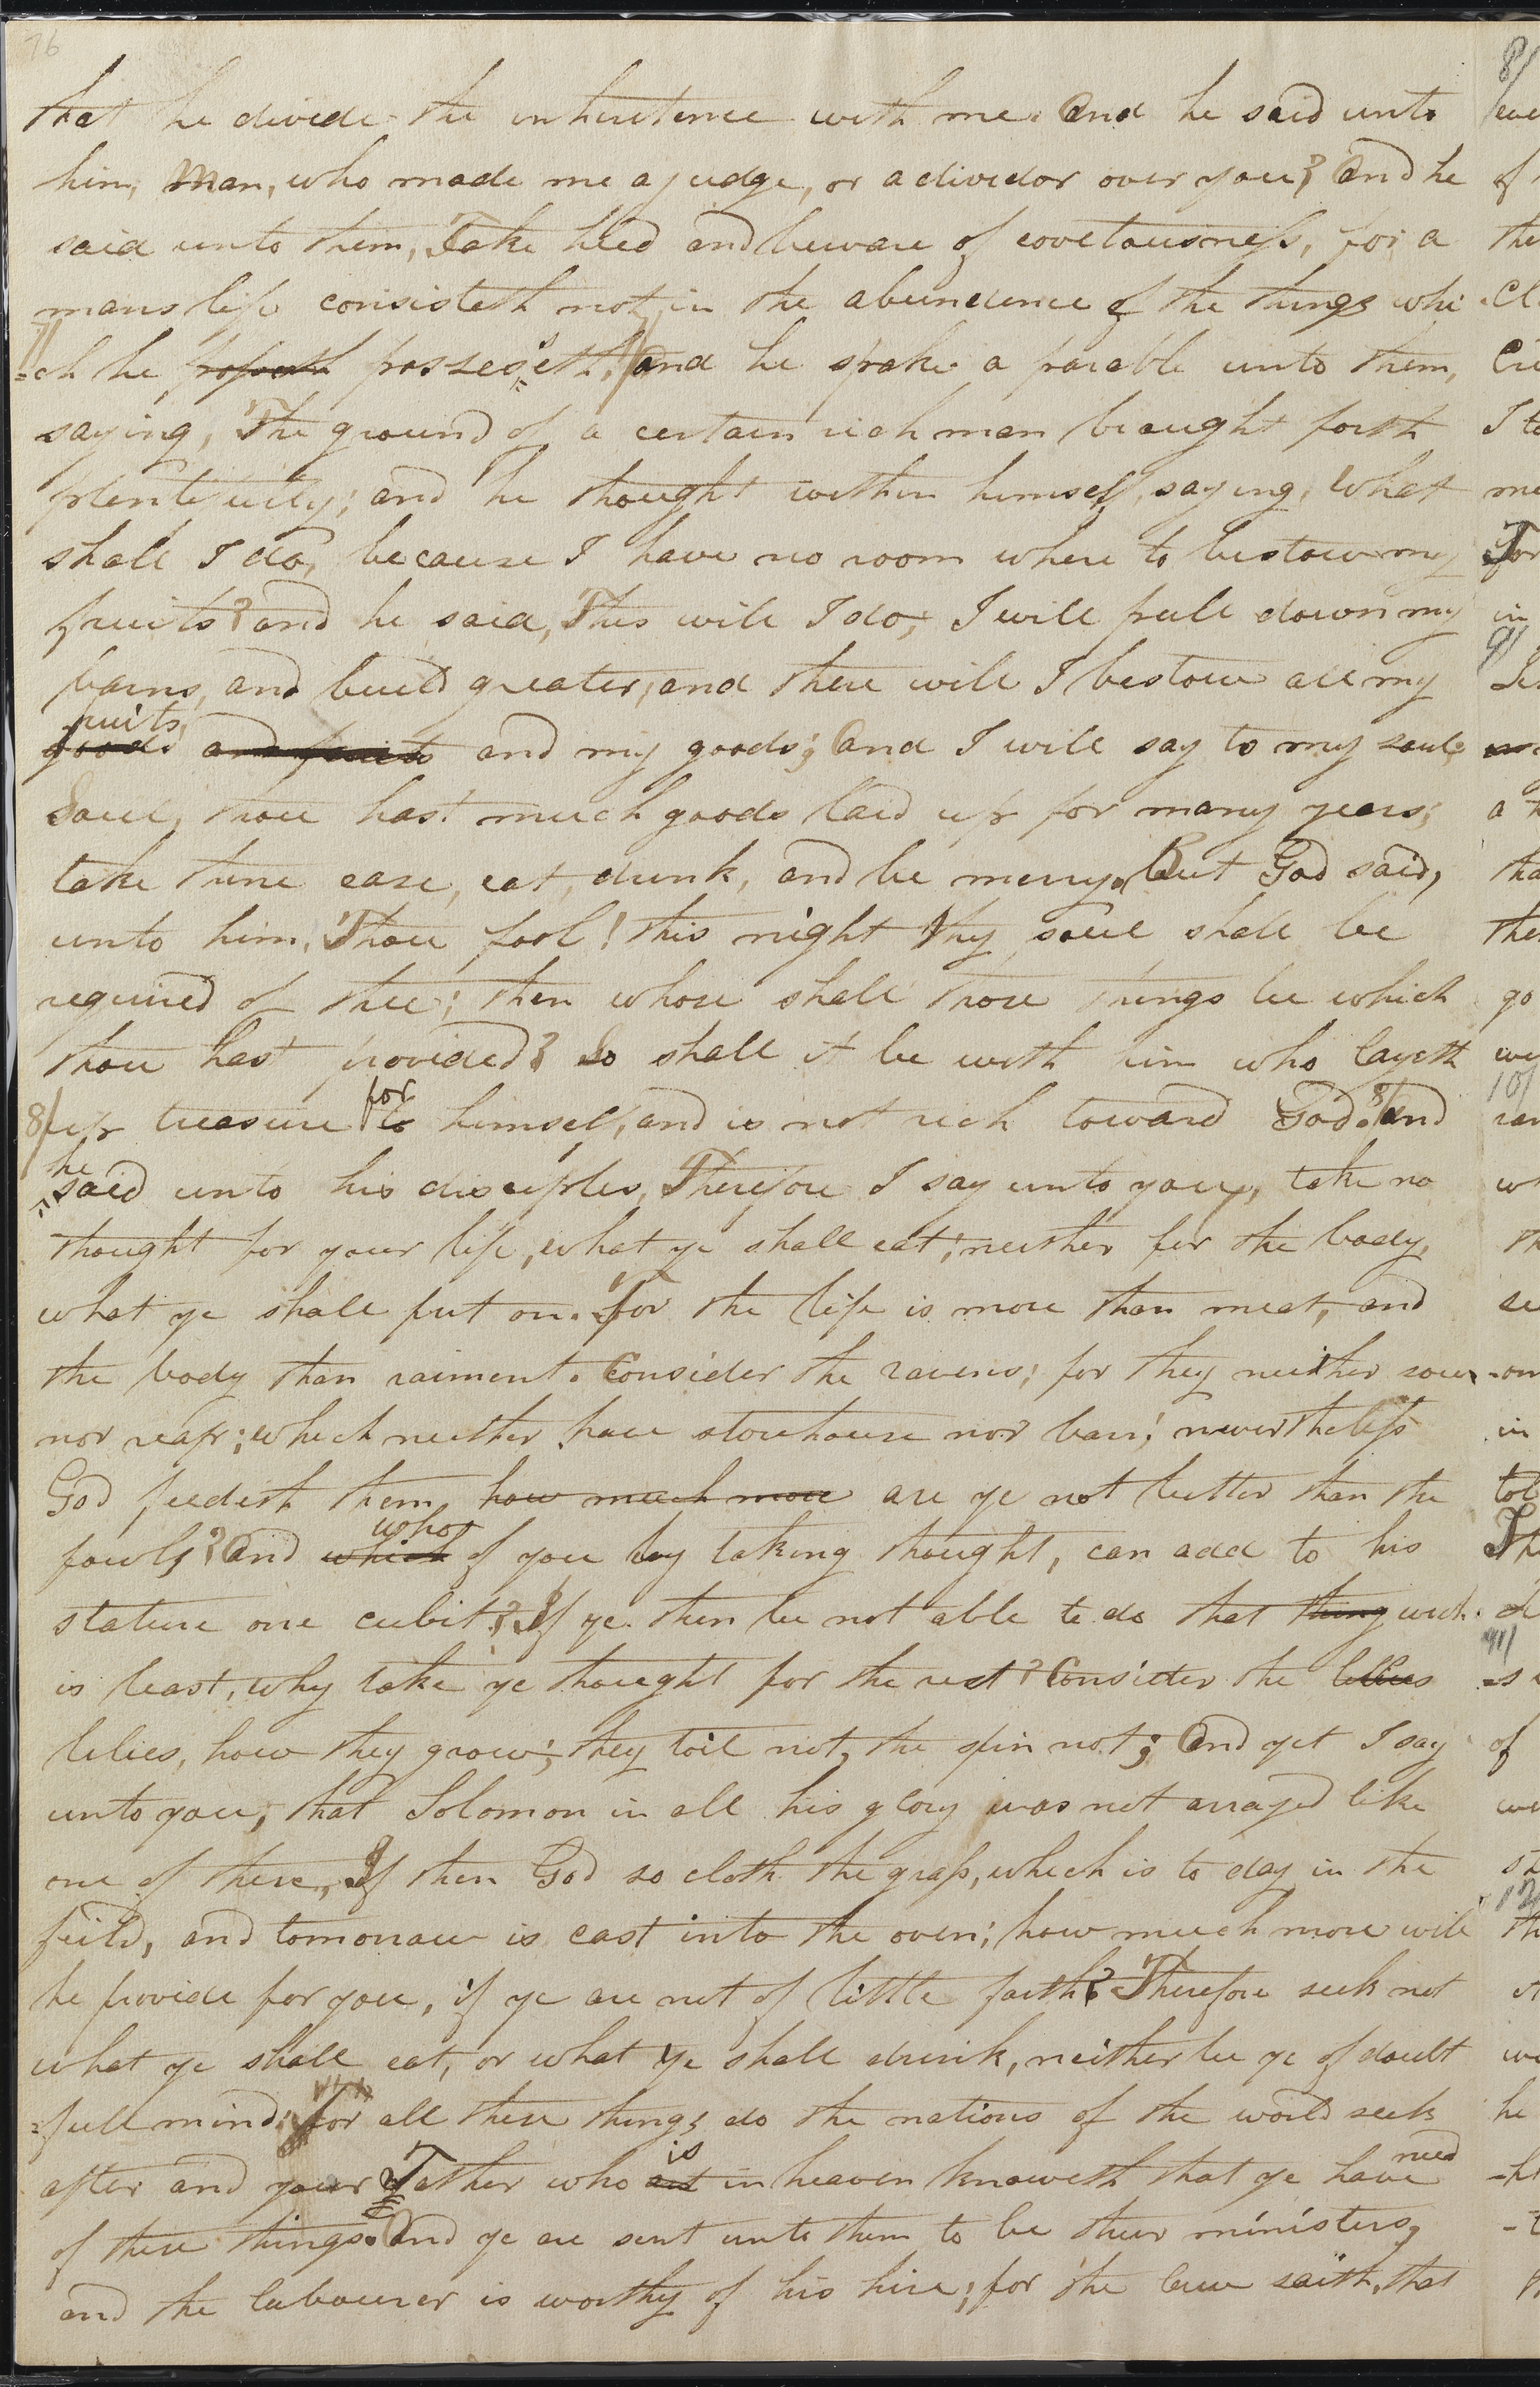 76
that he divide the inheritence with me. And he said unto
him, Man, who made me a judge, or a dividor over you? And he
said unto them, Take heed and beware of covetousness, for, a
mans life consisteth not, in the abundence of the things whi
7/
=ch he posseseth. And he spake a parable unto them,
saying, The ground of a certain rich man braught forth
plentifully; and he thought within himself, saying, what
shall I do, because I have no room where to bestow my
fruits? and he said, This will I do; I will pull down my
barns, and build greater; and there will I bestow all my
fruits
goods and fruits and my goods; And I will say to my soul;
Soul, thou hast much goods laid up for many years;
take thine ease, eat, drink, and be merry. But God said,
unto him, Thou fool! this night thy soul shall be
required of thee; then whose shall those things be which
thou hast provided? So shall it be with him who layeth
for
8/ up treasure to himself, and is not rich toward God. 8/ And
he
said unto his disciples, Therefore I say unto you, take no
thought for your life, what ye shall eat; neither for the body,
what ye shall put on. For the life is more than meat, and
the body than raiment. Consider the ravens; for they neither sow
nor reap; which neither have storehouse nor barn; nevertheless
God feedeth them, how much more are ye not better than the
who
fowls? And which of you by taking thought, can add to his
stature one cubit? If ye then be not able to do that thing which
is least, why take ye thought for the rest? Consider the lillies
lilies, how they grow; they toil not, the spin not; And yet I say
unto you, that Solomon in all his glory was not arrayed like
one of these, If then God so cloth the grass, which is to day in the
feild, and tomorrow is cast into the oven; how much more will
he provide for you, if ye are not of little faith? Therefore seek not
what ye shall eat, or what ye shall drink, neither be ye of doubt
=full mind; for all these things do the nations of the world seek
is need
after and your Father who art in heaven knoweth that ye have
of these things. And ye are sent unto them to be their ministers,
and the labourer is worthy of his hire; for the law saith, that